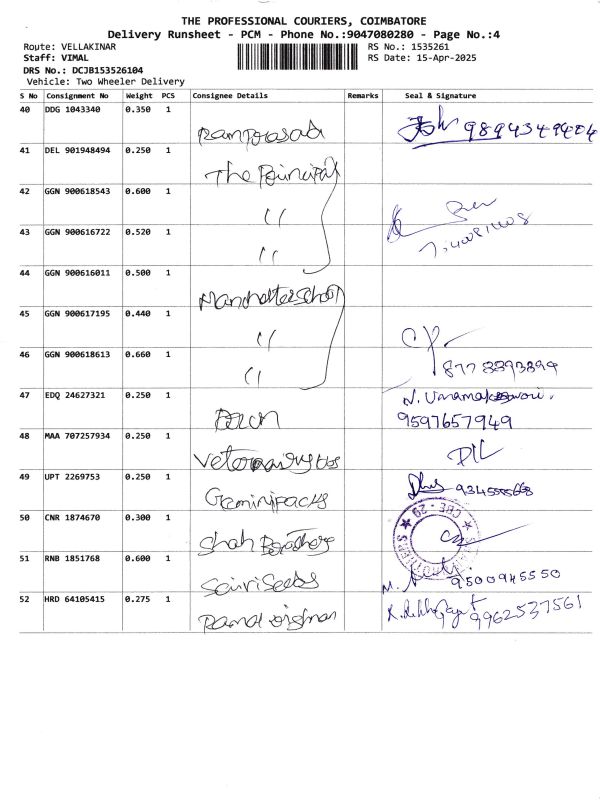 THE PROFESSIONAL COURIERS, COIMBATORE
Delivery Runsheet - PCM - Phone No.:9047080280 - Page No.:4
Route: VELLAKINAR RS No.: 1535261
Staff: VIMAL RS Date: 15-Apr-2025
DRS No.: DCJB153526104
Vehicle: Two Wheeler Delivery
S No Consignment No Weight PCS Consignee Details Remarks Seal & Signature
40 DDG 1043340 0.350 1
Ramprasad
41 DEL 901948494 0.250 1
The Principal
42 GGN 900618543 0.600 1
"
43 GGN 900616722 0.520 1
"
44 GGN 900616011 0.500 1
Manchester School
45 GGN 900617195 0.440 1
"
46 GGN 900618613 0.660 1
"
47 EDQ 24627321 0.250 1 N. Umamaheswari.
9597657949
48 MAA 707257934 0.250 1
Veterinary Hos
49 UPT 2269753 0.250 1
Geminipacks
50 CNR 1874670 0.300 1
Shah Brothers
51 RNB 1851768 0.600 1
9500945550
52 HRD 64105415 0.275 1
9962537561